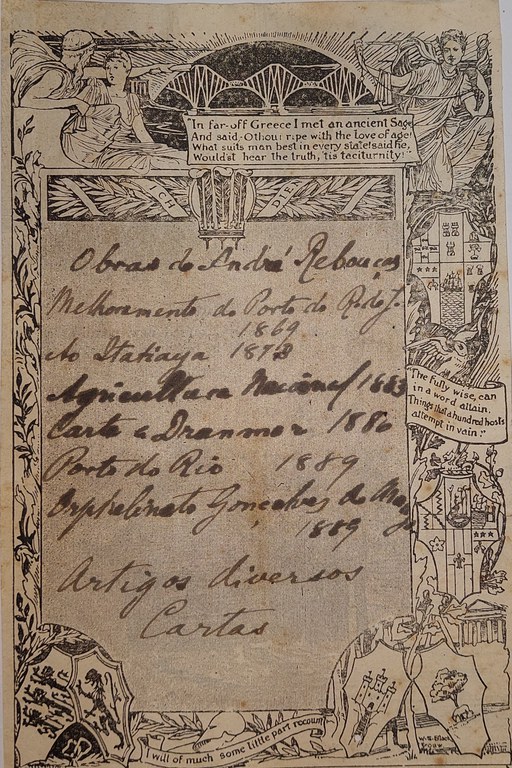 "In far-off Greece I met an ancient Sage
And said, O thou! ripe with the love of age!
What suits man best in every state? said he,
Would'st hear the truth, 'tis taciturnity!"
ICH DIEN
Obras de André Rebouças
Melhoramento do Porto do Rio de J.
1869
Ao Itatiaya 1878
Agricultura Nacional 1883
Carta a Dranmor 1886
Porto do Rio 1889
Orphelinato Gonçalves de
1889
Artigos diversos
Cartas
"The fully wise, can
in a word attain.
Things that a hundred hosts
attempt in vain:"
I will of much some little part recount